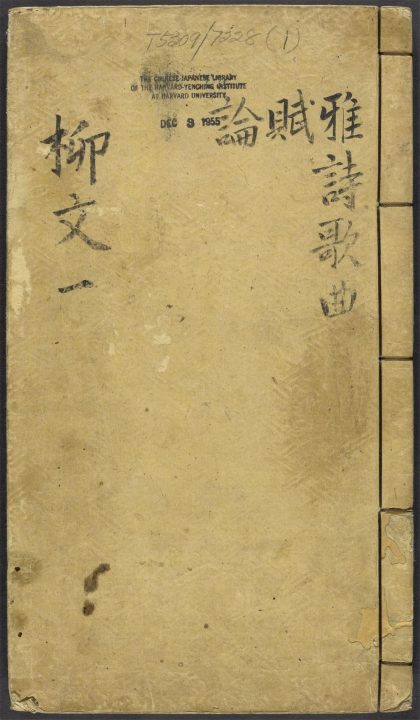 T5309/7328 (1)
THE CHINESE-JAPANESE LIBRARY
OF THE HARVARD-YENCHING INSTITUTE
AT HARVARD UNIVERSITY
DEC 9 1955
雅詩歌曲
賦
論
柳文一